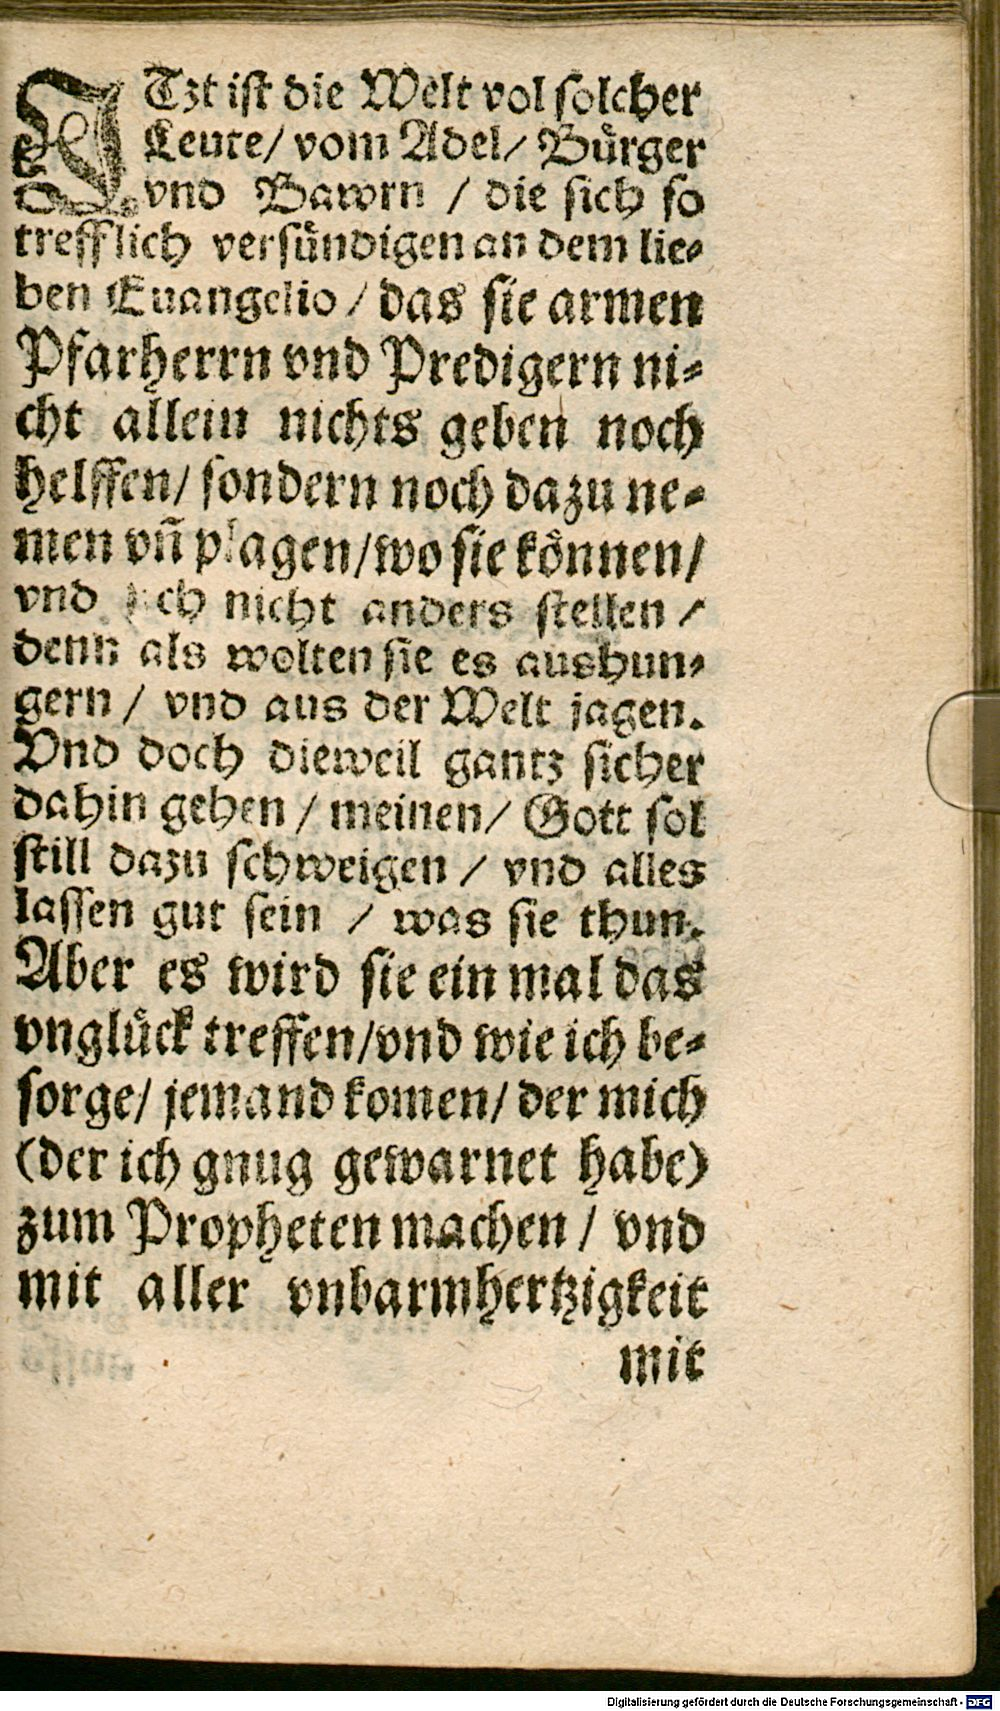 ITzt ist die Welt vol solcher
Leute/ vom Adel/ Bürger
vnd Bawrn / die sich so
trefflich versündigen an dem lie-
ben Euangelio / das sie armen
Pfarherrn vnd Predigern ni-
cht allein nichts geben noch
helffen/ sondern noch dazu ne-
men vñ plagen/wo sie können/
vnd sich nicht anders stellen /
denn als wolten sie es aushun-
gern / vnd aus der Welt jagen.
Vnd doch dieweil gantz sicher
dahin gehen / meinen/ Gott sol
still dazu schweigen / vnd alles
lassen gut sein / was sie thun.
Aber es wird sie ein mal das
vnglück treffen/vnd wie ich be-
sorge/ jemand komen/ der mich
(der ich gnug gewarnet habe)
zum Propheten machen / vnd
mit aller vnbarmhertzigkeit
mit
Digitalisierung gefördert durch die Deutsche Forschungsgemeinschaft - DFG